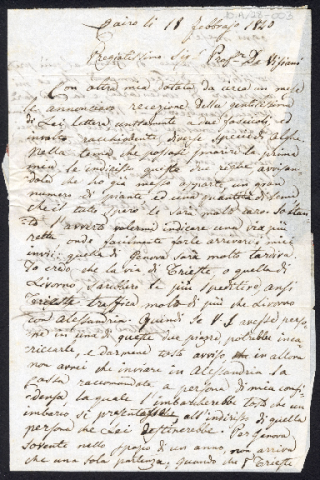 Cairo li 18 Febbraio 1850
Pregiatissimo Sigr Profre De Visiani
Con altra mia datata da circa un mese
le annunciava recezione della gentilissima
di Lei lettera unitamente a sei fascicoli ed
involto racchiudente diverse specie di alghe.
Nella tema che possasi smarrire la prima
mia, le indirizzo queste due righe avvisan-
dola che ho già messo a parte, un gran
numero di piante ed una quantità di semi
che il tutto spero le sarà molto caro. Soltan-
to l'averto volermi indicare una via più
retta onde facilmente farle arrivare i miei
invii, quella di Genova sarà molto tardiva.
Io credo che la via di Trieste o quella di
Livorno sarebbero le più spedite ed anzi
Trieste traffica molto di più che Livorno
con Alessandria. Quindi se V. S. avesse perso-
ne in una di queste due piazze potrebbe inca-
ricarle, e darmene tosto avviso che in allora
non avrei che inviare in Alessandria la
Cassa raccomandata a persona di mia confi-
denza la quale l'imbarcherebbe tosto che un
imbarco si presentasse all'indirizzo di quella
persona che Lei destinerebbe. Per Genova
sovente nello spazio di un anno non arriva
che una sola partenza, quando che pr Trieste